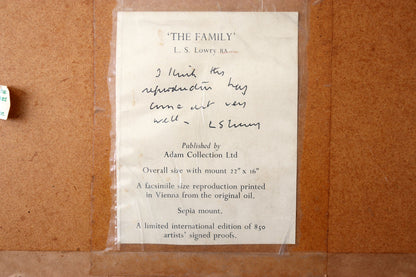 'THE FAMILY'
L. S. Lowry RA
I think this
reproduction has
come out very
well - L S Lowry
Published by
Adam Collection Ltd
Overall size with mount 22" x 16"
A facsimile size reproduction printed
in Vienna from the original oil.
Sepia mount.
A limited international edition of 850
artists' signed proofs.